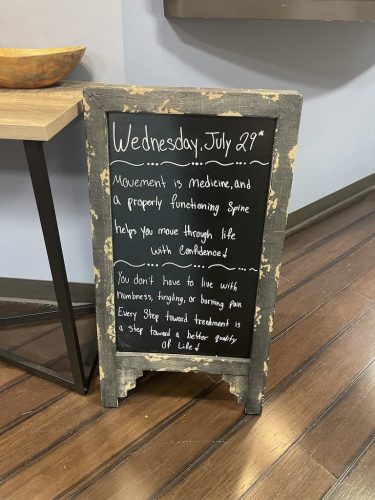 Wednesday, July 29th
Movement is medicine, and
a properly functioning Spine
helps you move through life
with confidence!
You don't have to live with
numbness, tingling, or burning pain
Every Step toward treatment is
a step toward a better quality
Of Life!